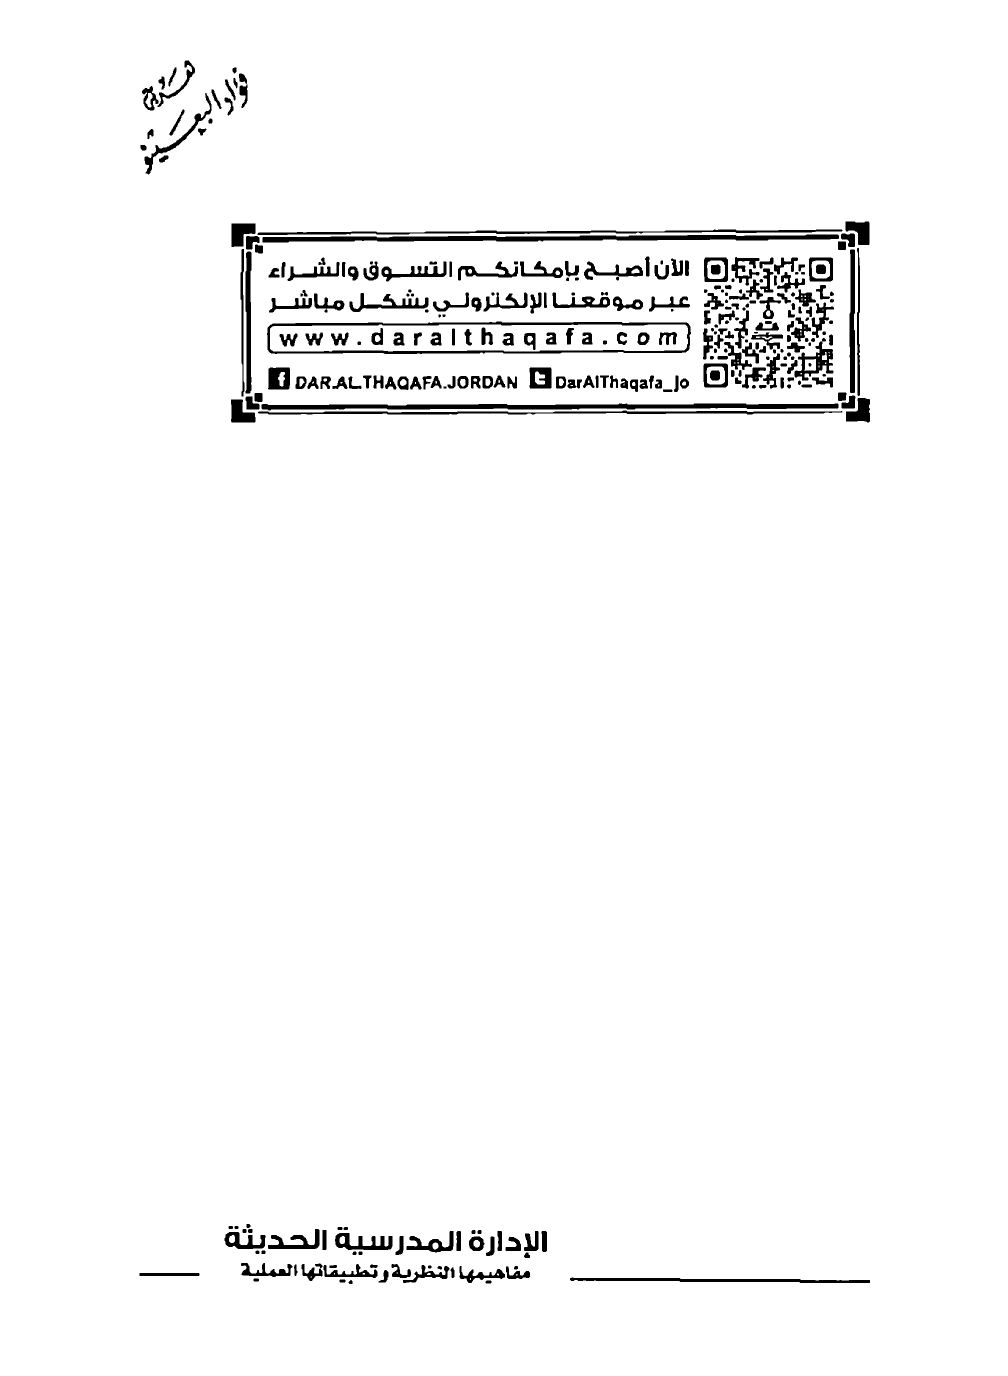 هدية
فؤاد البعيثيو
الآن أصبح بإمكانكم التسوق والشراء
عبر موقعنا الإلكتروني بشكل مباشر
www.daralthaqafa.com
DAR.AL.THAQAFA.JORDAN DarAlThaqafa_Jo
الإدارة المدرسية الحديثة
مفاهيمها النظرية وتطبيقاتها العملية